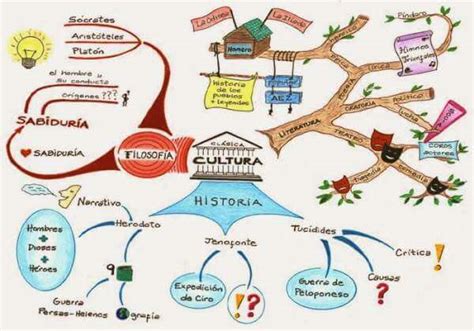 Sócrates
Aristóteles
Platón
el Hombre y
su conducta
Orígenes ???
SABIDURÍA
SABIDURÍA
FILOSOFÍA
CLÁSICA
CULTURA
HISTORIA
La Odisea
La Ilíada
Homero
Historia
de los
pueblos
+ leyendas
Épica
Lírica
ORATORIA
Política
LITERATURA
TEATRO
Tragedia
Comedia
COROS
actores
Píndaro
Himnos
Triunfales
Narrativo
Herodoto
Hombres
+
Dioses
+
Héroes
Guerra
Persas-Helenos
grafía
Jenofonte
Expedición
de Ciro
! ?
Tucídides
Guerra de
Peloponeso
Causas
?
Crítica !